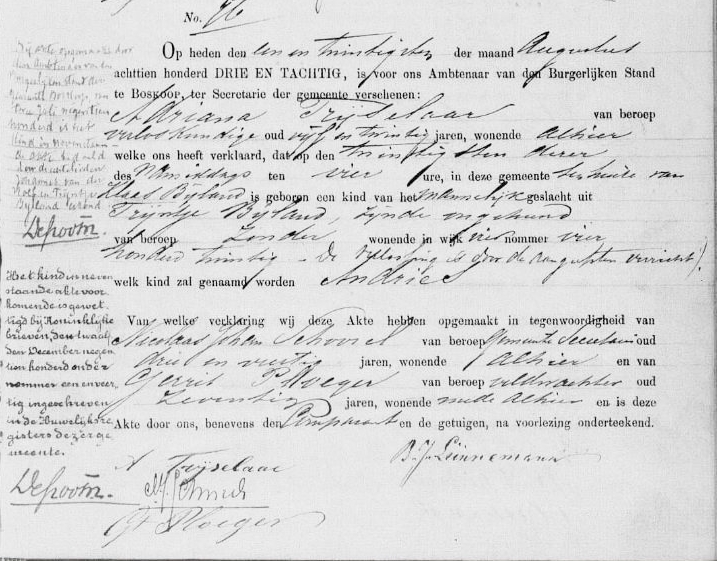 No. 76
Op heden den een en twintigsten der maand Augustus
achttien honderd DRIE EN TACHTIG, is voor ons Ambtenaar van den Burgerlijken Stand
te BOSKOOP, ter Secretarie der gemeente verschenen:
Adriana Trijselaar van beroep
verloskundige oud vijf en twintig jaren, wonende alhier
welke ons heeft verklaard, dat op den twintigsten dezer
des Namiddags ten vier ure, in deze gemeente ten huize van
Klaas Bijland is geboren een kind van het mannelijk geslacht uit
Trijntje Bijland, zijnde ongehuwd
van beroep zonder wonende in wijk nommer vier
honderd twintig - De is door de aangeefster verricht).
welk kind zal genaamd worden Andries
Van welke verklaring wij deze Akte hebben opgemaakt in tegenwoordigheid van
Nicolaas Johan Schoorel van beroep Gemeente Secretaris oud
drie en veertig jaren, wonende alhier en van
Gerrit Ploeger van beroep veldwachter oud
Zeventig jaren, wonende mede alhier en is deze
Akte door ons, benevens den Comparant en de getuigen, na voorlezing onderteekend.
A Trijselaar
B. J. Lünnemann
G. Ploeger
Bij akte opgemaakt door
den Ambtenaar van den
Burgerlijken Stand der
gemeente Boskoop van
twee Juli negentien
honderd is het
kind in nevenstaan-
de akte vermeld
door
van der
Wolf en Trijntje
Bijland erkend
Het kind in neven
staande akte voor-
komende is gewet-
tigd bij Koninklijke
brieven, den twaalf
den December negen
tien honderd onder
nommer een en veer-
tig ingeschreven
in de Huwelijksre
gisters dezer ge
meente.